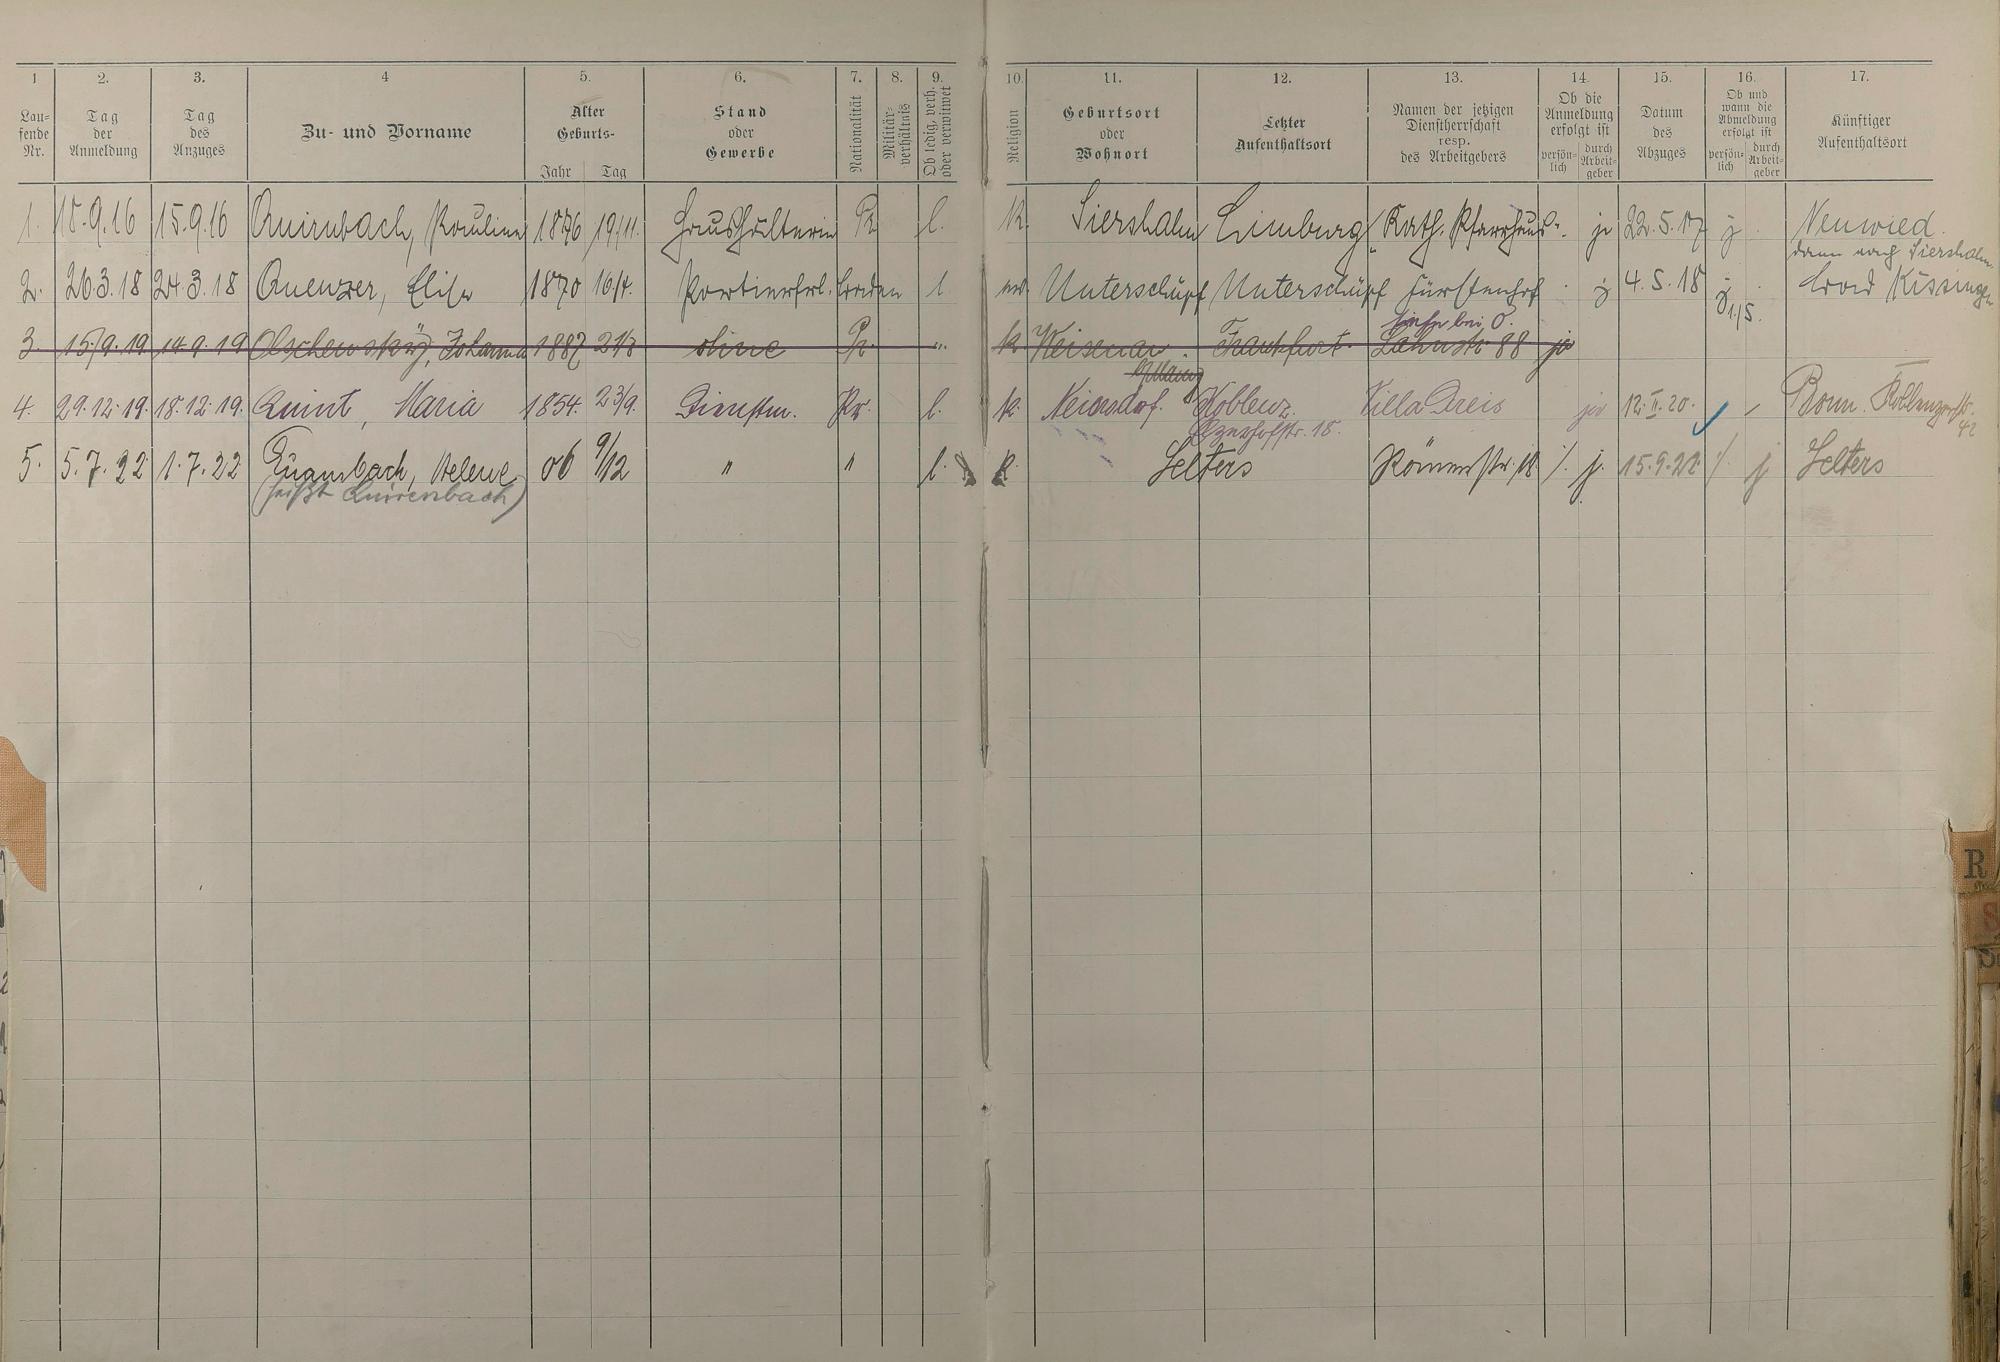 1 2. 3. 4 5. 6. 7. 8. 9. 10. 11. 12. 13. 14. 15. 16. 17.
Lau-
fende
Nr.
Tag
der
Anmeldung
Tag
des
Anzuges
Zu- und Vorname
Alter
Geburts-
Jahr Tag
Stand
oder
Gewerbe
Nationalität
Militär-
verhältnis
Ob ledig, verh.
oder verwitwet
Religion
Geburtsort
oder
Wohnort
Letzter
Aufenthaltsort
Namen der jetzigen
Dienstherrschaft
resp.
des Arbeitgebers
Ob die
Anmeldung
erfolgt ist
persön-
lich
durch
Arbeit-
geber
Datum
des
Abzuges
Ob und
wann die
Abmeldung
erfolgt ist
persön-
lich
durch
Arbeit-
geber
Künftiger
Aufenthaltsort
1. 18.9.16 15.9.16 Quirnbach, Pauline 1876 19/11. Haushälterin Pr l. k. Siershahn Limburg Kath. Pfarrhaus. j 22.5.17 j Neuwied.
dann nach Siershahn
2. 26.3.18 24.3.18 Quenzer, Elise 1870 16/4. Portierfrl. Baden l ev. Unterschüpf Unterschüpf Fürstenhof j 4.5.18 j Bad Kissingen
1/5.
siehe bei O.
3. 15.9.19 14.9.19 Olschewsky, Johanna 1887 21/3 ohne Pr. " k Weisenau. Frankfurt. Lahnstr 88 ja
b/Mainz
4. 29.12.19. 18.12.19. Quint, Maria 1854. 23/9. Dienstm. Pr. l. k. Neiersdorf. Koblenz. Villa Dreis ja 12.II.20. Bonn. Koblenzerstr.
42
5. 5.7.22 1.7.22 Quambach, Helene 06 9/12 " " l. k. Selters Römerstr. 18 j. 15.9.22 j Selters
(heißt Quirenbach)
R
S